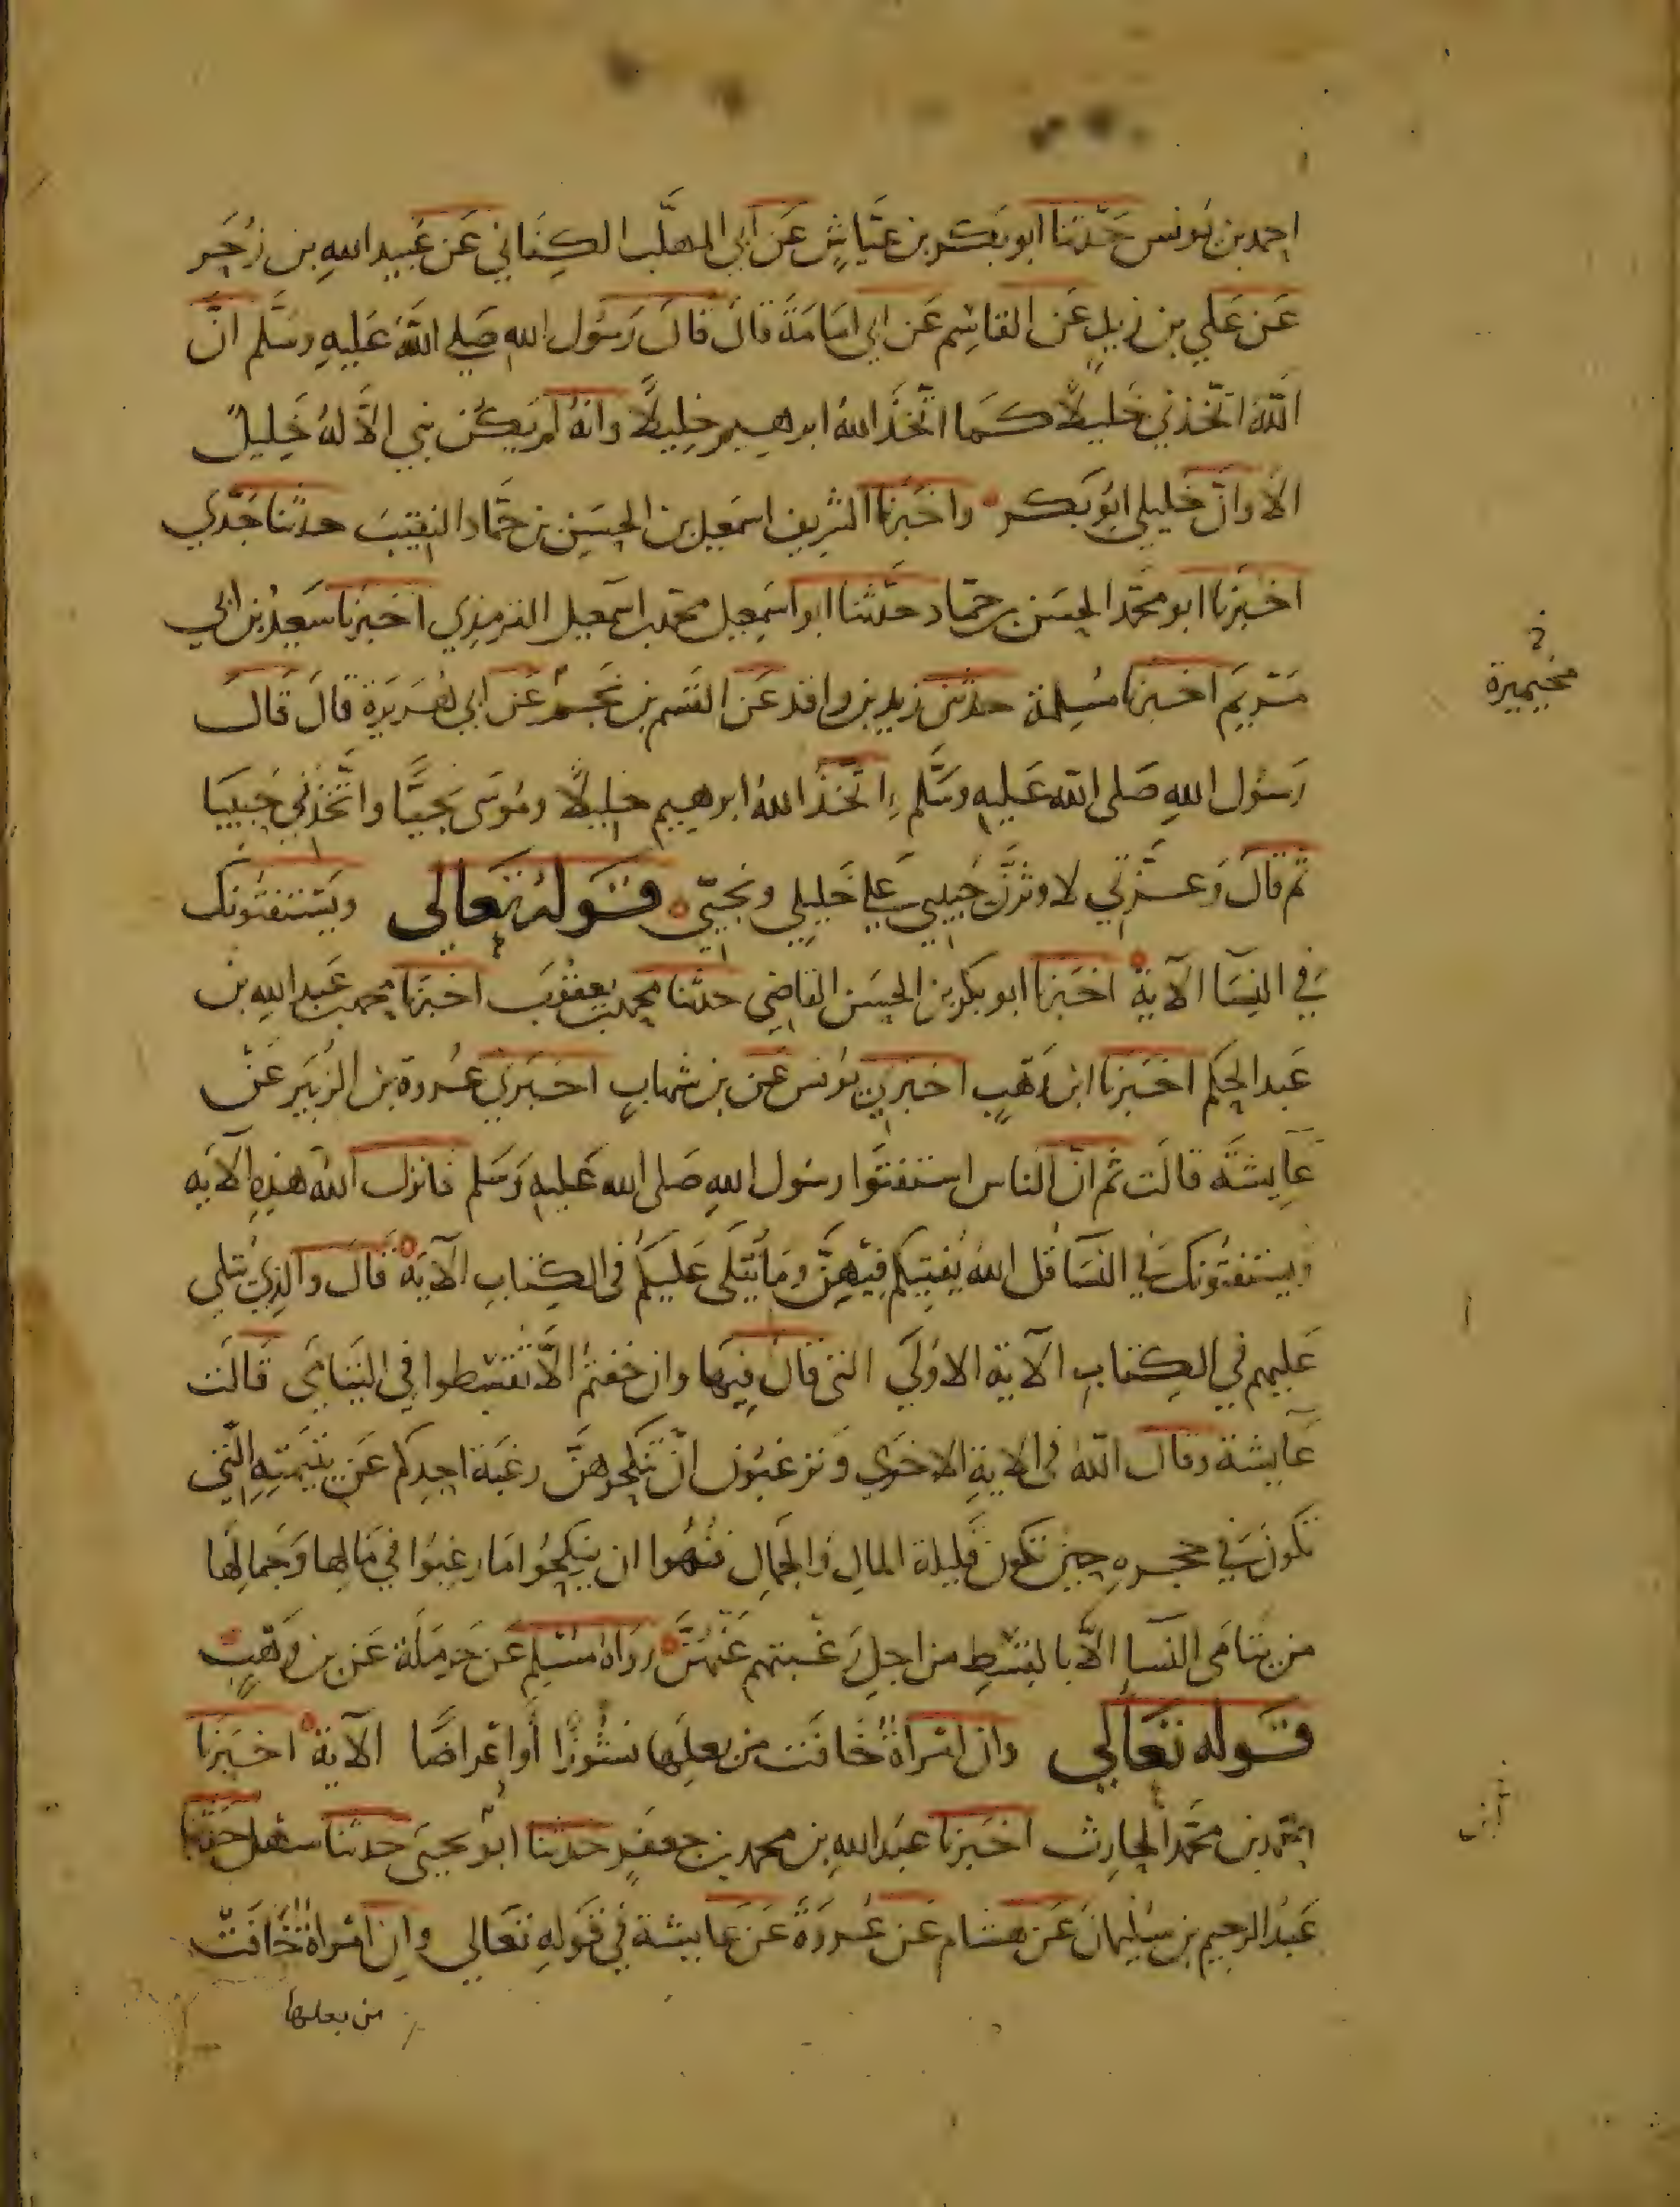 احمد بن يونس حَدَّثنا ابو بكر بن عيّاشٍ عَن ابي المهلّب الكِنَاني عَن عُبيد اللهِ بن زُحَر
عَن عَلي بن زيدٍ عَن القاسِم عَن ابي امَامَةَ قالَ قالَ رَسُول الله صَلي اللهُ عَليهِ وسَلَّم انَّ
اللهَ اتّخذني خَليلًا كما اتَّخذَ اللهُ ابرهيم خليلًا وانهُ لم يكن نبي الاَّ لهُ خَليلٌ
الاَ وانّ خَليلي ابو بكر واخبَرنا الشريف اسمَعيل بن الحسَين بن حمَّاد النقيبَ حدثنا جَدّي
اخبرَنا ابو محمّد الحسَن بن حمّاد حَدَّثنا ابو اسمَعيل محمد بن اسمَعيل الترمذي اخبرنا سَعيد بن ابي
مَريَم اخبرنا مُسلمة حدثني زيد بن واقد عَن القسم بن نجم عَن ابي هُرَيرَة قالَ قَالَ
رَسُول اللهِ صَلى الله عَليهِ وسَلَّم اتّخذ اللهُ ابرهيم خليلًا ومُوسَى نجيًّا واتّخذني حبيبَا
ثم قالَ وَعِزّتي لاوثرنَّ حَبيبي عَلي خَليلي ونجيّي قوله تعَالى ويَستفتونك
في النِسَا الآية اخبَرنا ابو بكر بن الحسَن القاضي حدثنا محمد بن يعقوبَ اخبرَنا محمد بن عَبد اللهِ بن
عَبد الحكم اخبَرنا ابن وَهبٍ اخبرني يُونس عَن بن شهابٍ اخبَرني عُروة بن الزُبَير عَنْ
عَايشَة قالَت ثم انّ الناس استفتَوا رسُول اللهِ صَلى الله عَليهِ وَسَلم فانزل الله هَذِهِ الآيَه
ويستفتُونَك في النسَا قل اللهُ يُفتيكم فيهنّ ومَا يُتلَى عَليكُم في الكِتَابِ الآيَة قالَ والذِي يُتلى
عَليهم في الكِتابِ الآية الاوُلَي التى قالَ فيهَا وان خفتمُ الاَّ تُقسطوا في اليتامَى قَالَت
عَايشة وقال اللهُ في الاية الاخرَي وَترغبُون انْ تنكحوهنَّ رغبَة احدِكم عَن يتيمَتِهِ التِي
تكون في حجره حين تكونُ قليلة المالِ وَالجمالِ فنُهُوا ان ينكِحُوا مَا رغِبُوا في مَالِها وَجَمالِهَا
من يتامَى النسَا الاّ بالقسْطِ من اجلِ رَغبتهم عَنهُنَّ رواهُ مُسْلِم عَن حَرمَلَة عَن بن وَهْبٍ
قَوله تعَالَي وان امراةٌ خَافَت من بعلِهَا نشُوزًا أوْ إعْرَاضًا الآية اخبَرَنا
احمَد بن محمَّد الحارِث اخبَرنا عَبد اللهِ بن محمد بن جعفرٍ حدثنا ابُو يحيَى حدثنا سهل حدثنا
عَبدُ الرحيم بن سُليمانَ عَن هشام عَن عُروَةَ عَن عَايشة في قَولهِ تعَالي وان امراةٌ خَافَتْ
من بعلها
مخيميرة